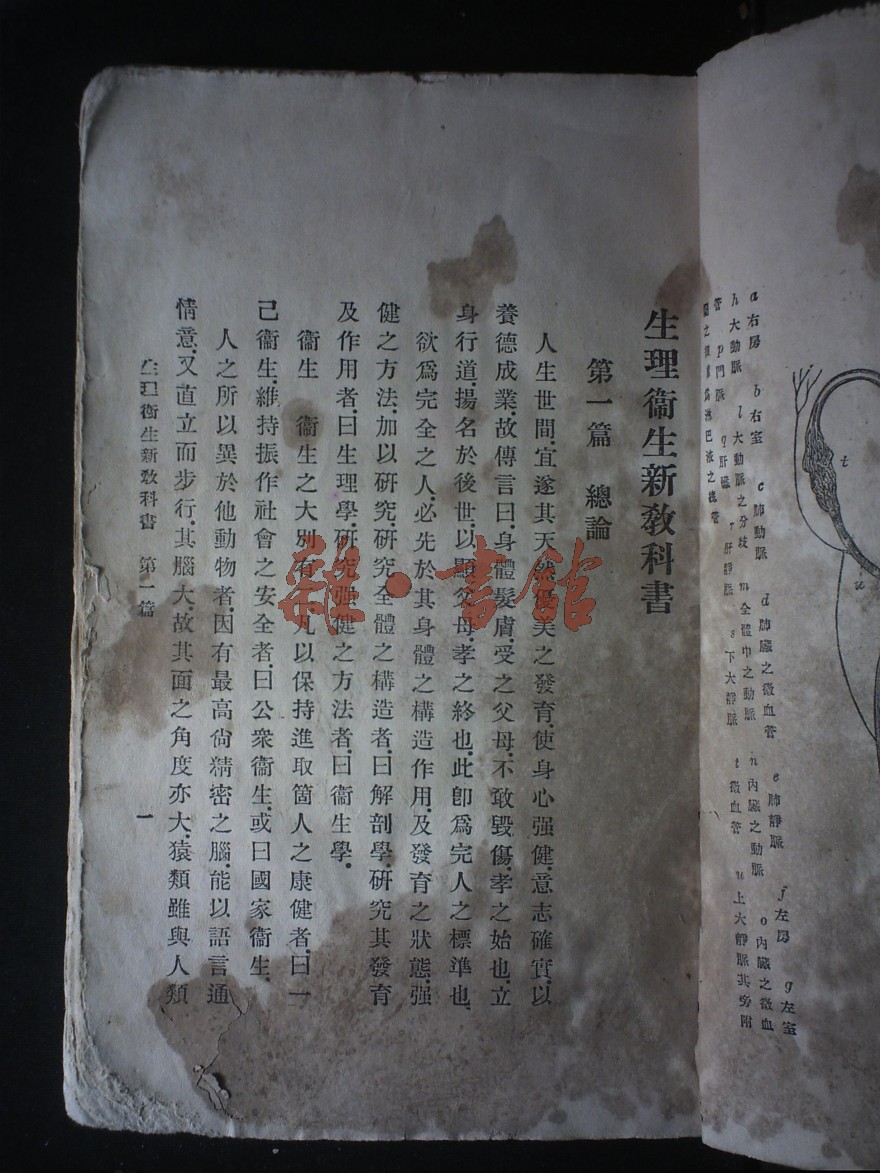 a右房 b右室 c肺動脈 d肺臟之微血管 e肺靜脈 f左房 g左室
h大動脈 l大動脈之分枝 m全體中之動脈 n內臟之動脈 o內臟之微血
管 p門脈 q肝臟 r肝靜脈 s下大靜脈 t微血管 u上大靜脈其旁附
淋巴液之總管
t
u
生理衞生新敎科書
第一篇 總論
人生世間.宜遂其天然優美之發育.使身心强健.意志確實.以
養德成業.故傳言曰.身體髮膚.受之父母.不敢毀傷.孝之始也.立
身行道.揚名於後世.以顯父母.孝之終也.此卽爲完人之標準也.
欲爲完全之人.必先於其身體之構造作用.及發育之狀態.强
健之方法.加以硏究.硏究全體之構造者.曰解剖學.硏究其發育
及作用者.曰生理學.硏究强健之方法者.曰衞生學.
衞生 衞生之大別有二.凡以保持進取箇人之康健者.曰一
己衞生.維持振作社會之安全者.曰公衆衞生.或曰國家衞生.
人之所以異於他動物者.因有最高尙精密之腦.能以語言通
情意.又直立而步行.其腦大.故其面之角度亦大.猿類雖與人類
生理衞生新敎科書 第一篇
一
雜·書館